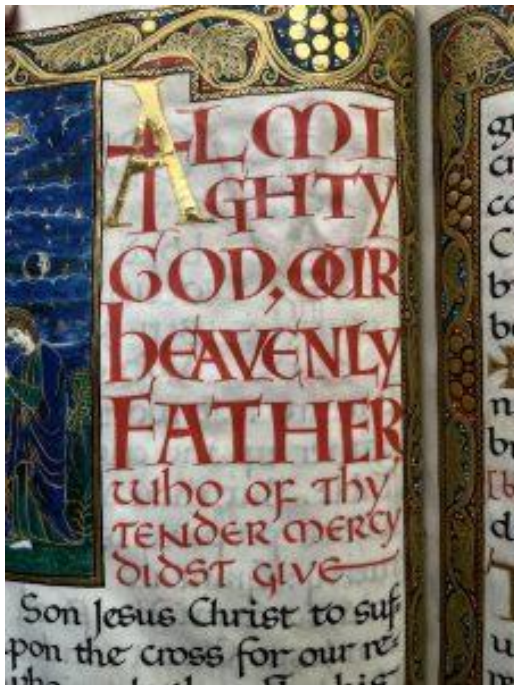 ALMI
GHTY
GOD, OUR
hEAVENLY
FATHER
who of Thy
TENDER MERCY
DIDST GIVE
Son Jesus Christ to suf-
pon the cross for our re-